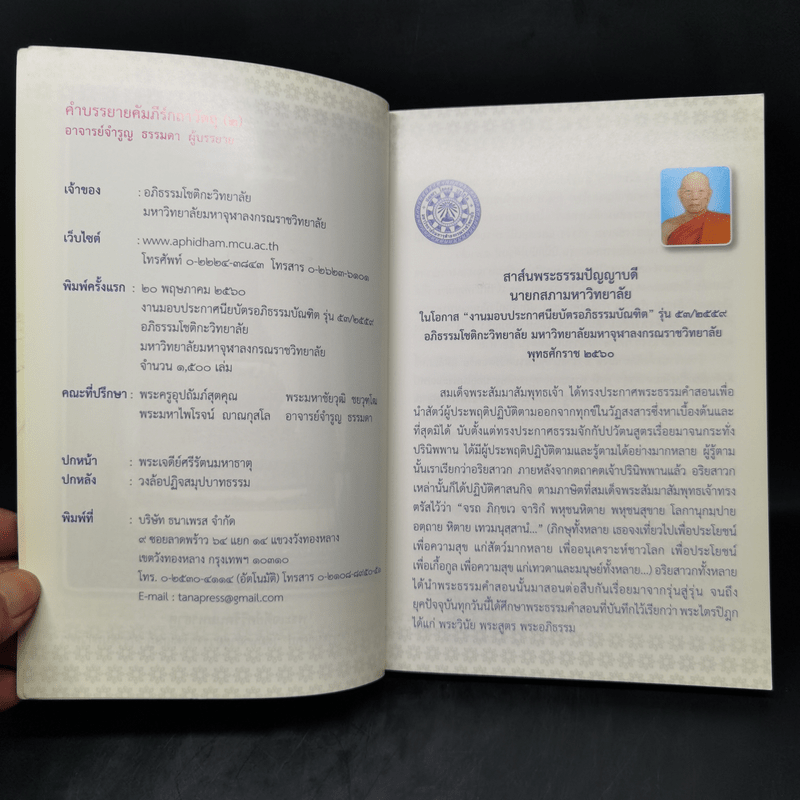 คำบรรยายคัมภีร์กถาวัตถุ (๒)
อาจารย์จำรูญ ธรรมดา ผู้บรรยาย
เจ้าของ : อภิธรรมโชติกะวิทยาลัย
มหาวิทยาลัยมหาจุฬาลงกรณราชวิทยาลัย
เว็บไซต์ : www.aphidham.mcu.ac.th
โทรศัพท์ ๐-๒๒๒๔-๓๘๔๓ โทรสาร ๐-๒๖๒๓-๖๑๐๑
พิมพ์ครั้งแรก : ๒๐ พฤษภาคม ๒๕๖๐
งานมอบประกาศนียบัตรอภิธรรมบัณฑิต รุ่น ๕๓/๒๕๕๙
อภิธรรมโชติกะวิทยาลัย
มหาวิทยาลัยมหาจุฬาลงกรณราชวิทยาลัย
จำนวน ๑,๕๐๐ เล่ม
คณะที่ปรึกษา : พระครูอุปถัมภ์สุตคุณ พระมหาชัยวุฒิ ชยวุฑฺโฒ
พระมหาไพโรจน์ ญาณกุสโล อาจารย์จำรูญ ธรรมดา
ปกหน้า : พระเจดีย์ศรีรัตนมหาธาตุ
ปกหลัง : วงล้อปฏิจสมุปบาทธรรม
พิมพ์ที่ : บริษัท ธนาเพรส จำกัด
๙ ซอยลาดพร้าว ๖๔ แยก ๑๔ แขวงวังทองหลาง
เขตวังทองหลาง กรุงเทพฯ ๑๐๓๑๐
โทร. ๐-๒๕๓๐-๔๑๑๔ (อัตโนมัติ) โทรสาร ๐-๒๑๐๘-๘๙๕๐-๕๑
E-mail : tanapress@gmail.com
สาส์นพระธรรมปัญญาบดี
นายกสภามหาวิทยาลัย
ในโอกาส “งานมอบประกาศนียบัตรอภิธรรมบัณฑิต” รุ่น ๕๓/๒๕๕๙
อภิธรรมโชติกะวิทยาลัย มหาวิทยาลัยมหาจุฬาลงกรณราชวิทยาลัย
พุทธศักราช ๒๕๖๐
สมเด็จพระสัมมาสัมพุทธเจ้า ได้ทรงประกาศพระธรรมคำสอนเพื่อ
นำสัตว์ผู้ประพฤติปฏิบัติตามออกจากทุกข์ในวัฏสงสารซึ่งหาเบื้องต้นและ
ที่สุดมิได้ นับตั้งแต่ทรงประกาศธรรมจักกัปปวัตนสูตรเรื่อยมาจนกระทั่ง
ปรินิพพาน ได้มีผู้ประพฤติปฏิบัติตามและรู้ตามได้อย่างมากหลาย ผู้รู้ตาม
นั้นเราเรียกว่าอริยสาวก ภายหลังจากตถาคตเจ้าปรินิพพานแล้ว อริยสาวก
เหล่านั้นก็ได้ปฏิบัติศาสนกิจ ตามภาษิตที่สมเด็จพระสัมมาสัมพุทธเจ้าทรง
ตรัสไว้ว่า “จรถ ภิกฺขเว จาริกํ พหุชนหิตาย พหุชนสุขาย โลกานุกมฺปาย
อตฺถาย หิตาย เทวมนุสฺสานํ...” (ภิกษุทั้งหลาย เธอจงเที่ยวไปเพื่อประโยชน์
เพื่อความสุข แก่สัตว์มากหลาย เพื่ออนุเคราะห์ชาวโลก เพื่อประโยชน์
เพื่อเกื้อกูล เพื่อความสุข แก่เทวดาและมนุษย์ทั้งหลาย...) อริยสาวกทั้งหลาย
ได้นำพระธรรมคำสอนนั้นมาสอนต่อสืบกันเรื่อยมาจากรุ่นสู่รุ่น จนถึง
ยุคปัจจุบันทุกวันนี้ได้ศึกษาพระธรรมคำสอนที่บันทึกไว้เรียกว่า พระไตรปิฎก
ได้แก่ พระวินัย พระสูตร พระอภิธรรม